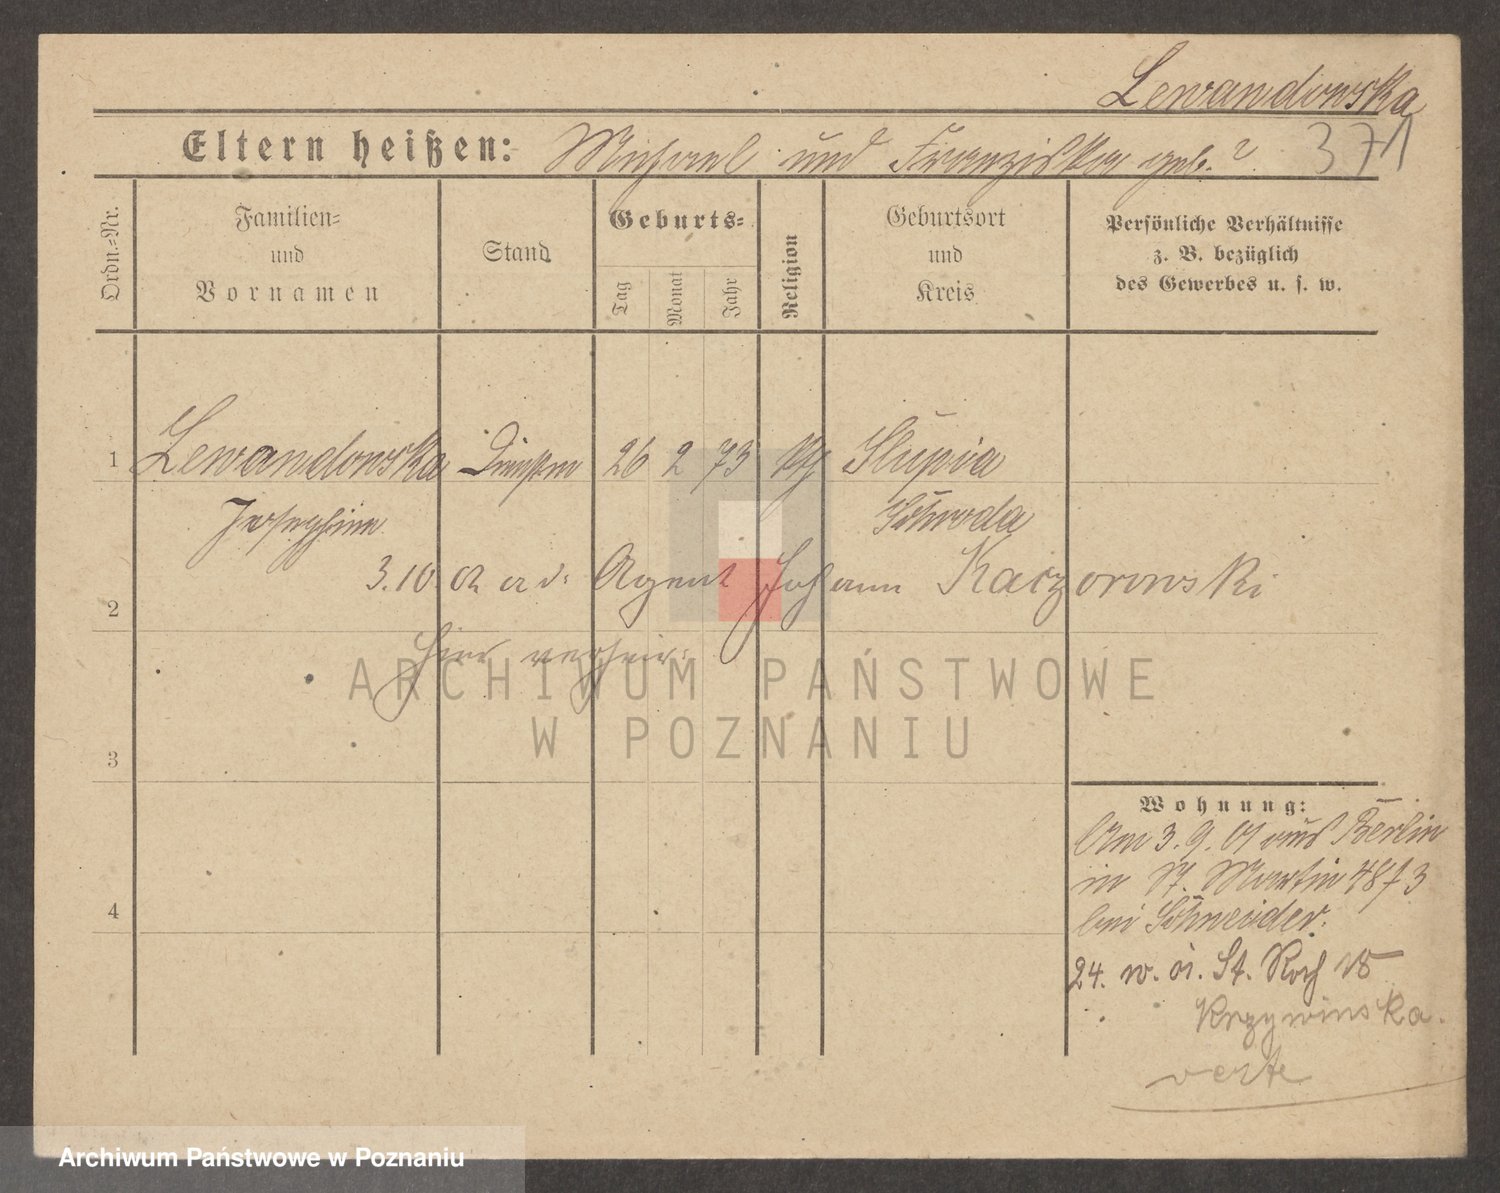 Lewandowska
Eltern heißen: Michael und Franziska geb. ?
371
Ordn.=Nr.
Familien=
und
Vornamen
Stand
Geburts=
Tag
Monat
Jahr
Religion
Geburtsort
und
Kreis
Persönliche Verhältnisse
z. B. bezüglich
des Gewerbes u. s. w.
1 Lewandowska 26 2 73 kth Slupia
Josephine Schroda
3.10.02 a. d. Agent Johann Kaczorowski
2
hier verheir:
ARCHIWUM PAŃSTWOWE
W POZNANIU
3
Wohnung:
Am 3.9.01 aus Berlin
in St. Martin 48
bei Schneider.
4
24. St. Roch 15
Krzywinska.
verte
Archiwum Państwowe w Poznaniu